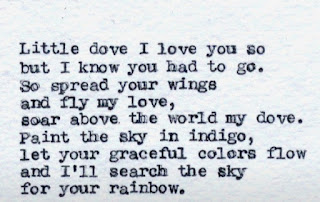 Little dove I love you so
but I know you had to go.
So spread your wings
and fly my love,
soar above the world my dove.
Paint the sky in indigo,
let your graceful colors flow
and I'll search the sky
for your rainbow.